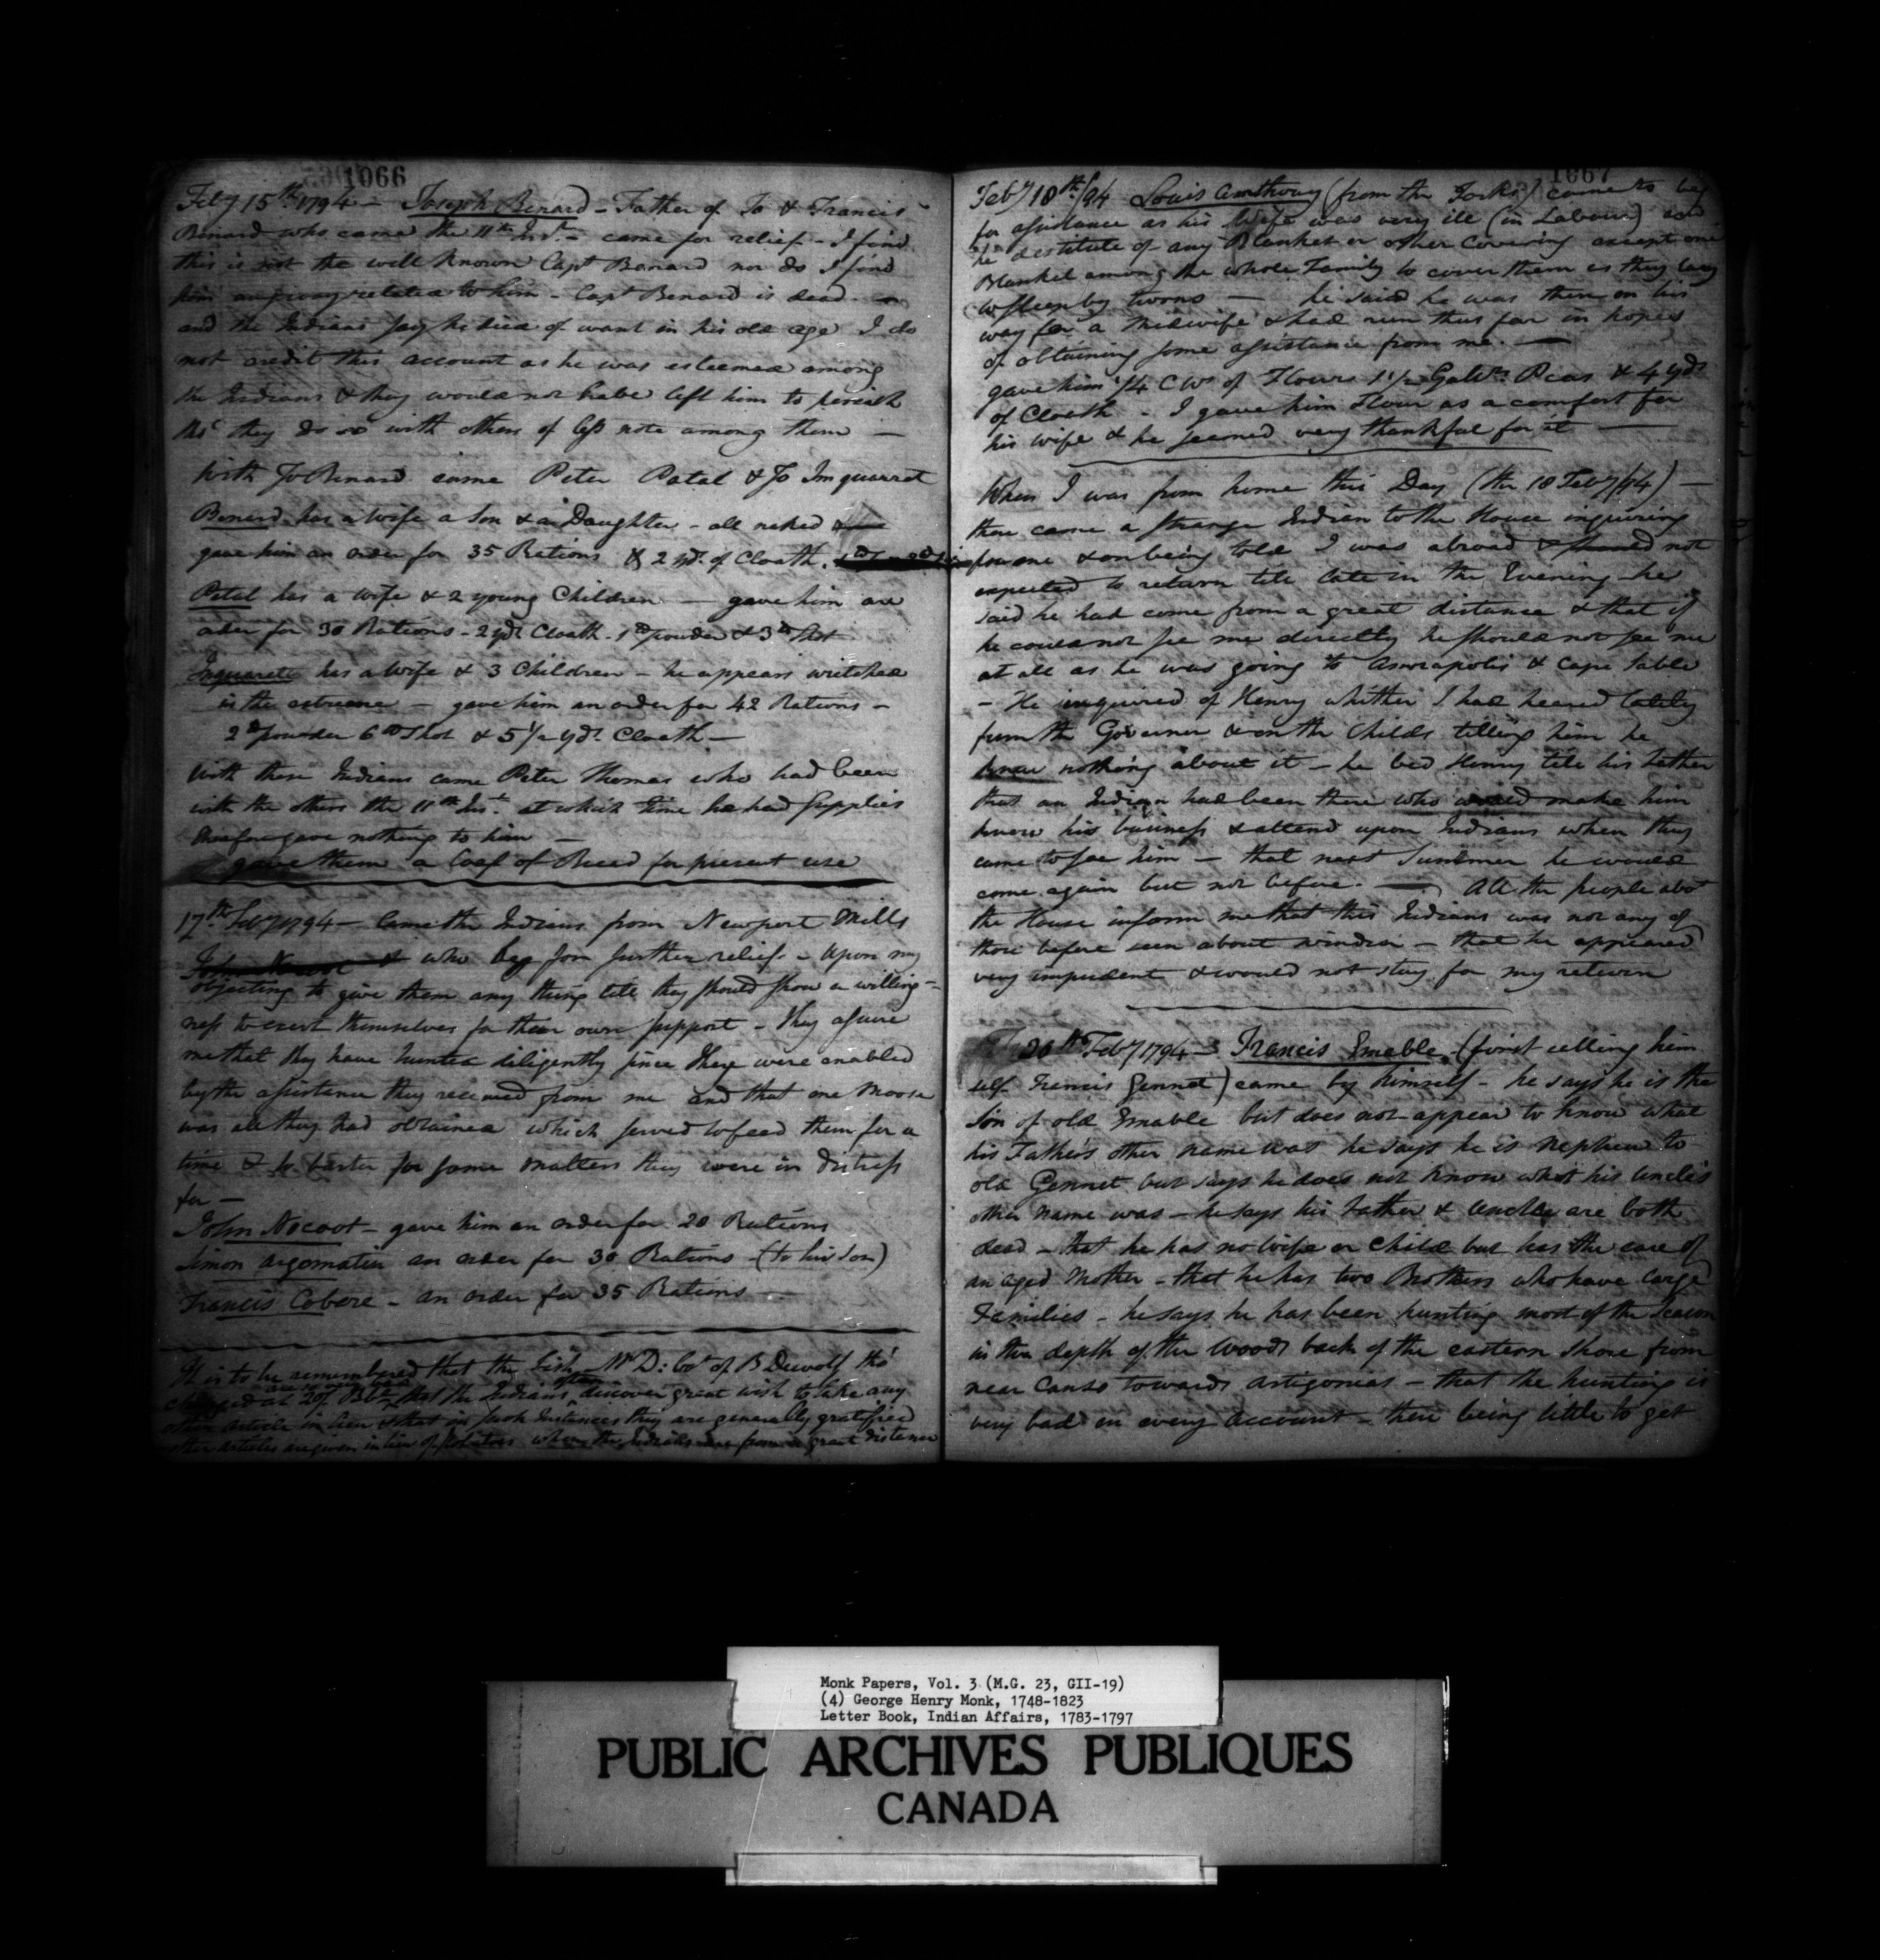 1066
Feby 15th 1794 — Joseph Benard - Father of Jo & Francis
Benard who came the 11th Inst. - came for relief - I find
this is not the well known Capt Benard nor do I find
him any way related to him - Capt Benard is dead
and the Indians say he died of want in his old age I do
not credit this account as he was esteemed among
the Indians & they would not have left him to perish
tho' they do so with others of less note among them —
With Jo Benard came Peter Patal & Jo Imquarret
Benard has a wife a Son & a Daughter - all naked
gave him an order for 35 Rations & 2 yds. of Cloath.
Patal has a wife & 2 young Children — gave him an
order for 30 Rations - 2 yds Cloath - 1 lb powder & 3 lb Shot
Inquarett has a wife & 3 Children - he appears wretched
in the extreme — gave him an order for 42 Rations -
2 lb powder 6 lb Shot & 5 1/2 yds. Cloath —
With these Indians came Peter Thomas who had been
with the others the 11th Inst. at which time he had Supplies
therefore gave nothing to him —
gave them a Loaf of Bread for present use
17th Feby 1794 — Came the Indians from Newport Mills
John Nocoot & who beg for further relief - Upon my
objecting to give them any thing till they should show a willing-
ness to exert themselves for their own support - they assure
me that they have hunted diligently since they were enabled
by the assistance they received from me and that one Moose
was all they had obtained which served to feed them for a
time & to barter for some matters they were in distress
for —
John Nocoot - gave him an order for 20 Rations
Simon Argomatin an order for 30 Rations - (to his son)
Francis Cobere - an order for 35 Rations
It is to be remembered that the fish Mr D: Cot of B Dewolf tho'
charged at 20/ Bll that the Indians often discover great wish to take any
other article in lieu & that in such Instances they are generally gratified
other articles are given in lieu of potatoes when the Indians are from a great distance
1067
Feby 18th/94 Louis Anthony (from the Forks) came to beg
for assistance as his Wife was very ill (in Labour) and
he destitute of any Blanket or other Covering except one
Blanket among the whole Family to cover them as they lay
to sleep by turns — he said he was then on his
way for a Midwife & had run thus far in hopes
of obtaining some assistance from me. —
gave him 1/4 Cwt of Flour 1 1/2 Galln. Peas & 4 yds
of Cloath - I gave him Flour as a comfort for
his wife & he seemed very thankful for it —
When I was from home this Day (the 18 Feby/94) —
there came a strange Indian to the House inquiring
for me & on being told I was abroad & should not
expected to return till late in the Evening - he
said he had come from a great distance & that if
he could not see me directly he should not see me
at all as he was going to Annapolis & Cape Sable
- He inquired of Henry whither I had heared lately
from the Governor & on the Childs telling him he
knew nothing about it - he bed Henry tell his Father
that an Indian had been there who would make him
know his business & attend upon Indians when they
came to see him - that next Summer he would
come again but not before. — All the people abot
the House inform me that this Indians was not any of
those before seen about Windsor - that he appeared
very impudent & would not stay for my return
20th Feby 1794 - Francis Emable. (first calling him
self Francis Gennet) came by himself - he says he is the
Son of old Emable but does not appear to know what
his Father's other name was he says he is Nephew to
old Gennet but says he does not know what his Uncle's
other name was - he says his Father & Uncle are both
dead - that he has no Wife or Child but has the care of
an aged Mother - that he has two Brothers who have large
Families - he says he has been hunting most of the season
in the depth of the Woods back of the eastern Shore from
near Canso towards Antigonias - that the hunting is
very bad on every account - there being little to get
Monk Papers, Vol. 3 (M.G. 23, GII-19)
(4) George Henry Monk, 1748-1823
Letter Book, Indian Affairs, 1783-1797
PUBLIC ARCHIVES PUBLIQUES
CANADA